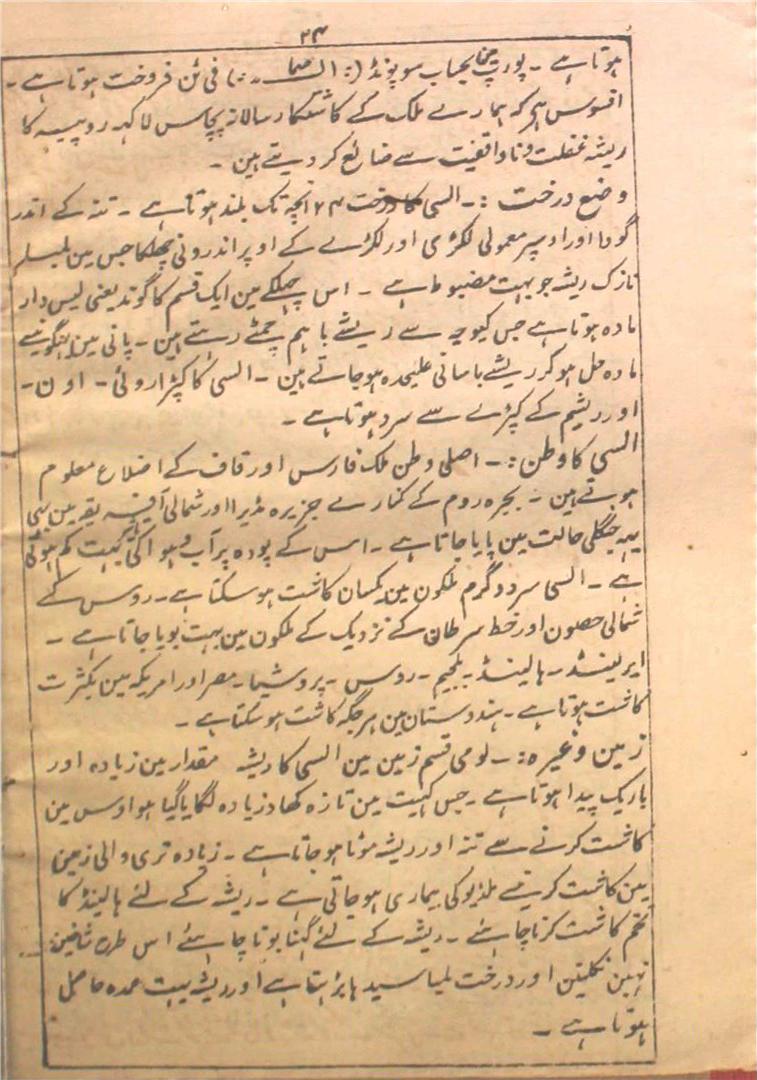 ۲۴
ہوتا ہے ۔ یورپ مین بحساب سو پونڈ (: ) فی ٹن فروخت ہوتا ہے ۔
افسوس ہی کہ ہمارے ملک کے کاشتکار سالانہ پچاس لاکھہ روپیہ کا
ریشہ غفلت و ناواقفیت سے ضائع کر دیتے ہین ۔
وضع درخت :۔ السی کا درخت ۲۴ انچہ تک بلند ہوتا ہے ۔ تنہ کے اندر
گودا اور اوسپر معمولی لکڑی اور لکڑے کے اوپر اندرونی چھلکا جس مین
نازک ریشہ جو بہت مضبوط ہے ۔ اس چھلکے مین ایک قسم کا گوند یعنی لیس دار
مادہ ہوتا ہے جس کیوجہ سے ریشے باہم چمٹے رہتے ہین ۔ پانی مین بہگونیسے
مادہ حل ہو کر ریشے باسانی علیحدہ ہو جاتے ہین ۔ السی کا کپڑا روئی ۔ اون ۔
اور ریشیم کے کپڑے سے سرد ہوتا ہے ۔
السی کا وطن :۔ اصلی وطن ملک فارس اور قاف کے اضلاع معلوم
ہوتے ہین ۔ بحیرہ روم کے کنارے جزیرہ مڈیرا اور شمالی آفریقہ مین بہی
یہہ جنگلی حالت مین پایا جاتا ہے ۔ اس کے پودہ پر آب و ہوا کی بہت کم ہوتی
ہے ۔ السی سرد و گرم ملکون مین یکسان کاشت ہو سکتا ہے ۔ روس کے
شمالی حصون اور خط سرطان کے نزدیک کے ملکون مین بہت بویا جاتا ہے ۔
ایرلینڈ ۔ ہالینڈ ۔ بلجیم ۔ روس ۔ پروشیا ۔ مصر اور امریکہ مین بکثرت
کاشت ہوتا ہے ۔ ہندوستان مین ہر جگہ کاشت ہو سکتا ہے ۔
زمین وغیرہ :۔ لومی قسم زمین مین السی کا ریشہ مقدار مین زیادہ اور
باریک پیدا ہوتا ہے ۔ جس کہیت مین تازہ کھاد زیادہ لگایا گیا ہو اوس مین
کاشت کرنے سے تنہ اور ریشہ موٹا ہو جاتا ہے ۔ زیادہ تری والی زمین
مین کاشت کرنیسے ملڈیو کی بیماری ہو جاتی ہے ۔ ریشہ کے لئے ہالینڈ کا
تخم کاشت کرنا چاہئے ۔ ریشہ کے لئے گہنا بونا چاہئے اس طرح شاخین
نہین نکلتین اور درخت لمبا سیدہا بڑہتا ہے اور ریشہ بہت عمدہ حاصل
ہوتا ہے ۔